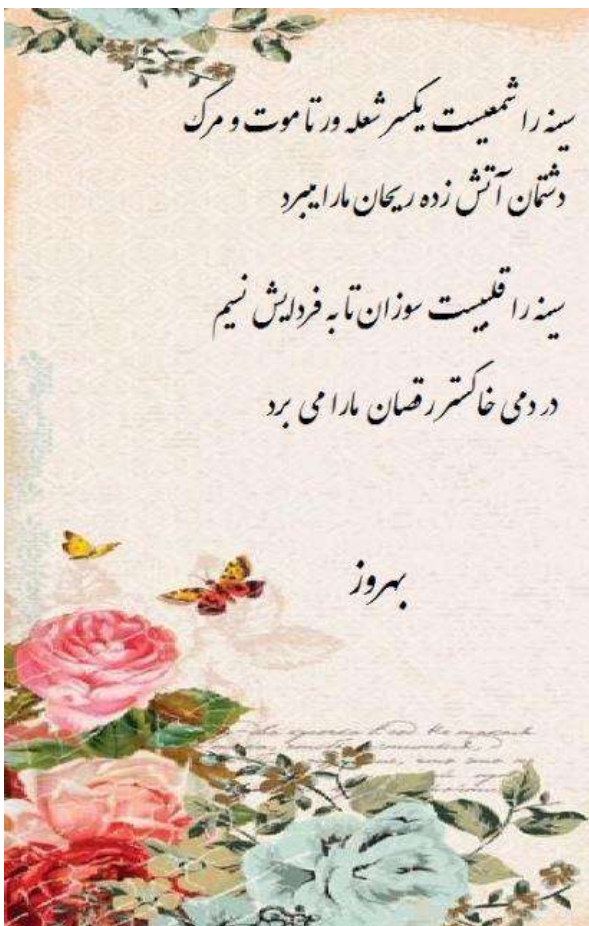 سینه را شمعیست یکسر شعله ور تا موت و مرگ
دشتمان آتش زده ریحان مارا میبرد
سینه را قلبیست سوزان تا به فردایش نسیم
در دمی خاکستر رقصان مارا می برد
بهروز